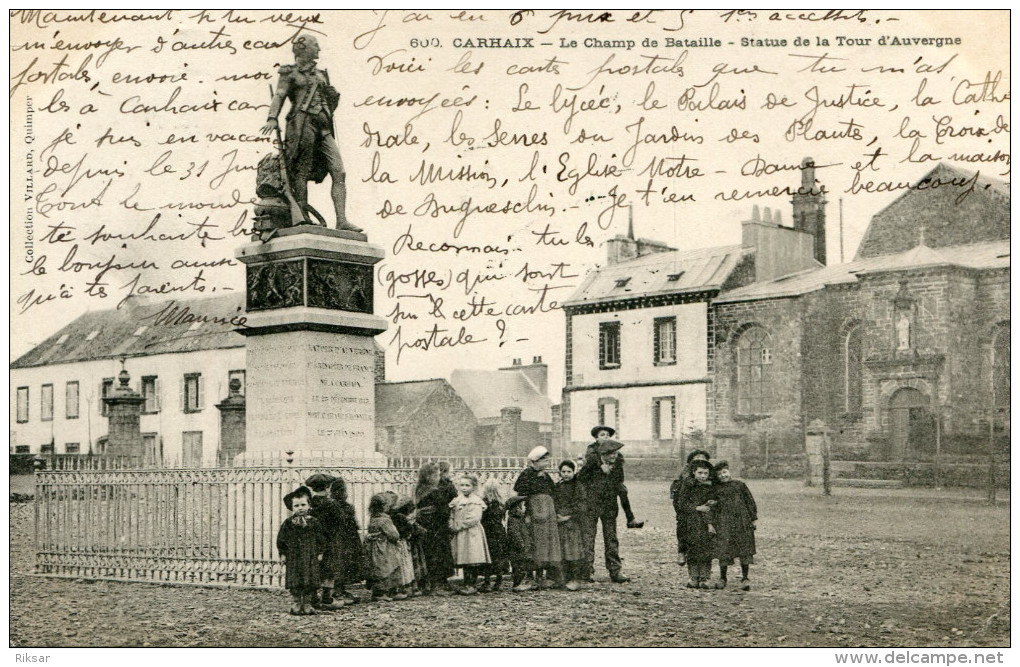 600. CARHAIX — Le Champ de Bataille - Statue de la Tour d'Auvergne
Collection VILLARD, Quimper
J'ai eu 6 prix et 5 1ers accessits. -
Voici les cartes postales que tu m'as
envoyées : Le lycée, le Palais de Justice, la Cathé
drale, les Serres du Jardin des Plantes, la Croix de
la Mission, l'Eglise Notre-Dame et la maison
de Duguesclin. - Je t'en remercie beaucoup. -
Reconnais-tu les
(gosses) qui sont
sur cette carte
postale ? -
Maintenant si tu veux
m'envoyer d'autres cartes
postales, envoie-moi
les à Carhaix car
je suis en vacan
depuis le 31
Tout le monde
te souhaite le
le bonjour ainsi
qu'à tes parents.
Maurice
LA TOUR D'AUVERGNE
Riksar
www.delcampe.net